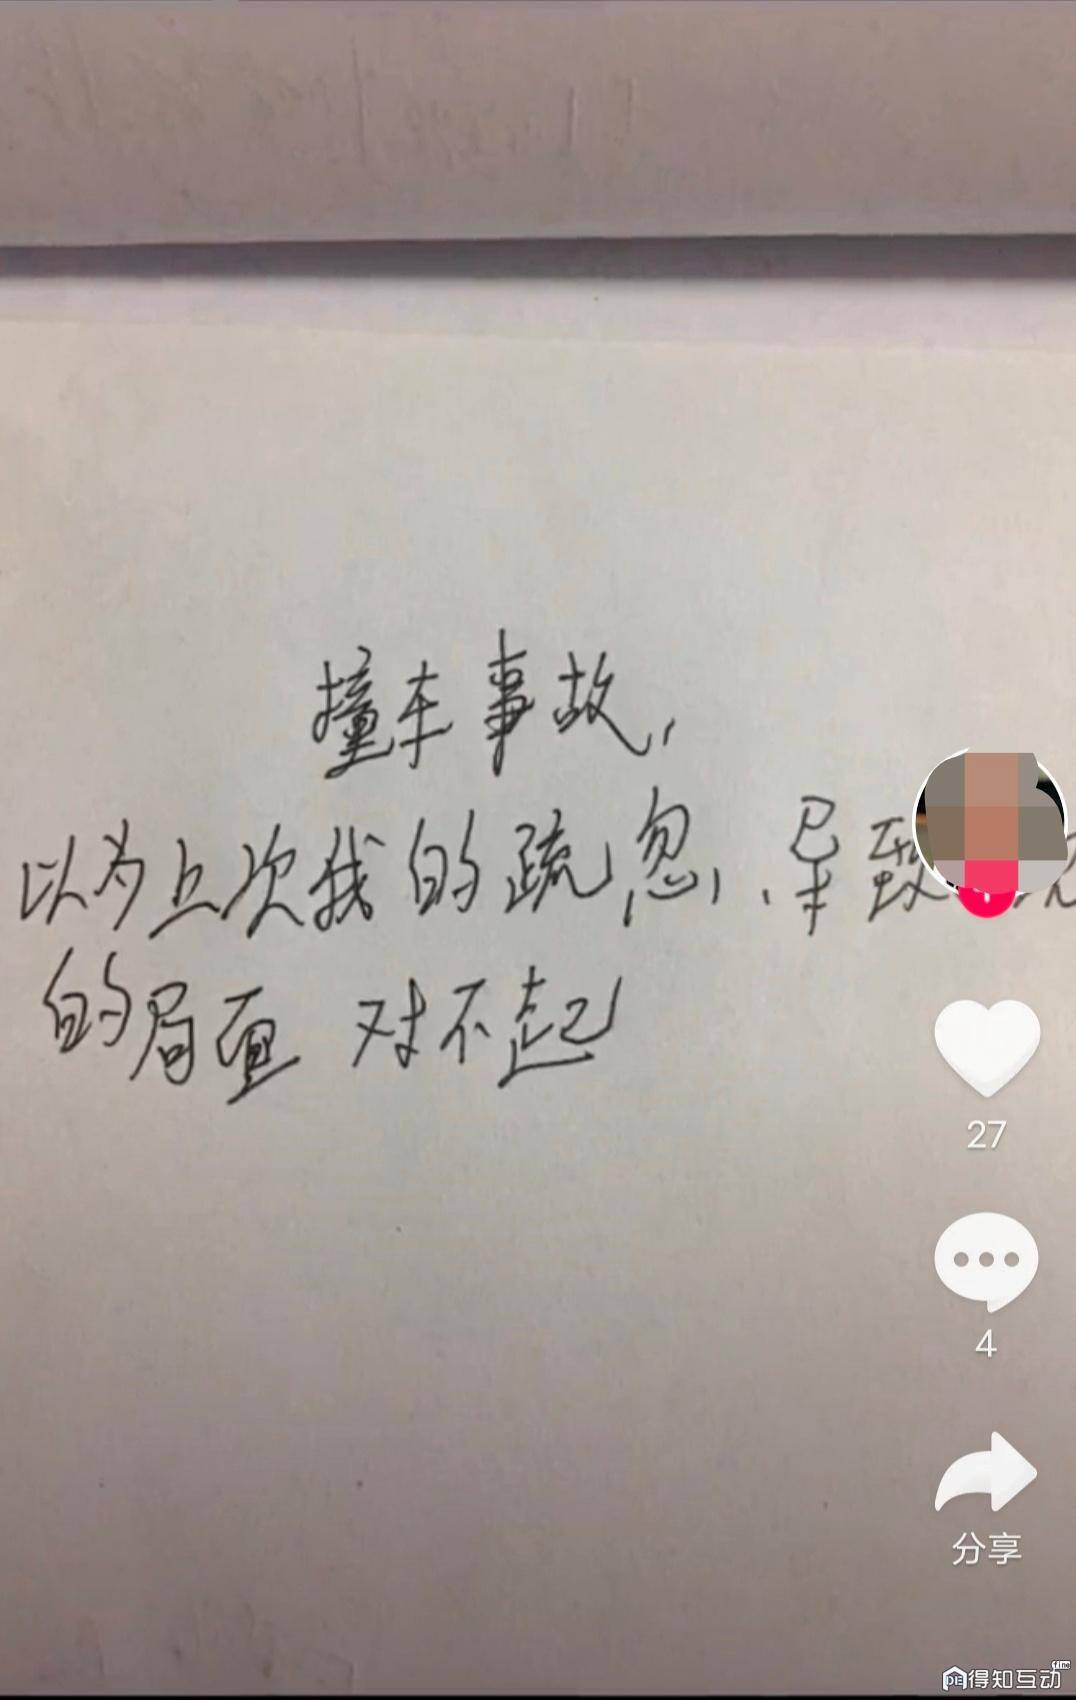 撞车事故,
以为上次我的疏忽, 导致
的局面 对不起
27
4
分享
得知互动